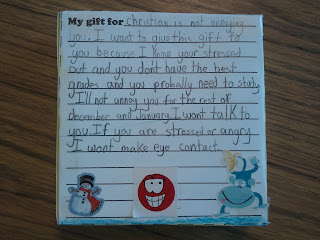 My gift for Christian is not annoying
you. I want to give this gift to
you because I know your stressed
out and you don't have the best
grades and you probally need to study.
I'll not annoy you for the rest of
december and January. I wont talk to
you. If you are stressed or angry
I wont make eye contact.